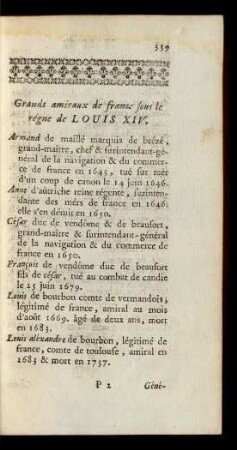 339
Grands amiraux de france sous le
régne de LOUIS XIV.
Armand de maillé marquis de brézé,
grand-maître, chef & surintendant-gé-
néral de la navigation & du commer-
ce de france en 1643, tué sur mer
d'un coup de canon le 14 juin 1646.
Anne d'autriche reine régente, surinten-
dante des mérs de france en 1646;
elle s'en démit en 1650.
César duc de vendôme & de beaufort,
grand-maître & surintendant-général
de la navigation & du commerce
de france en 1650.
François de vendôme duc de beaufort
fils de césar, tué au combat de candie
le 25 juin 1679.
Louis de bourbon comte de vermandois,
légitimé de france, amiral au mois
d'août 1669. âgé de deux ans, mort
en 1683.
Louis aléxandre de bourbon, légitimé de
france, comte de toulouse, amiral en
1683 & mort en 1737.
P 2 Géné-